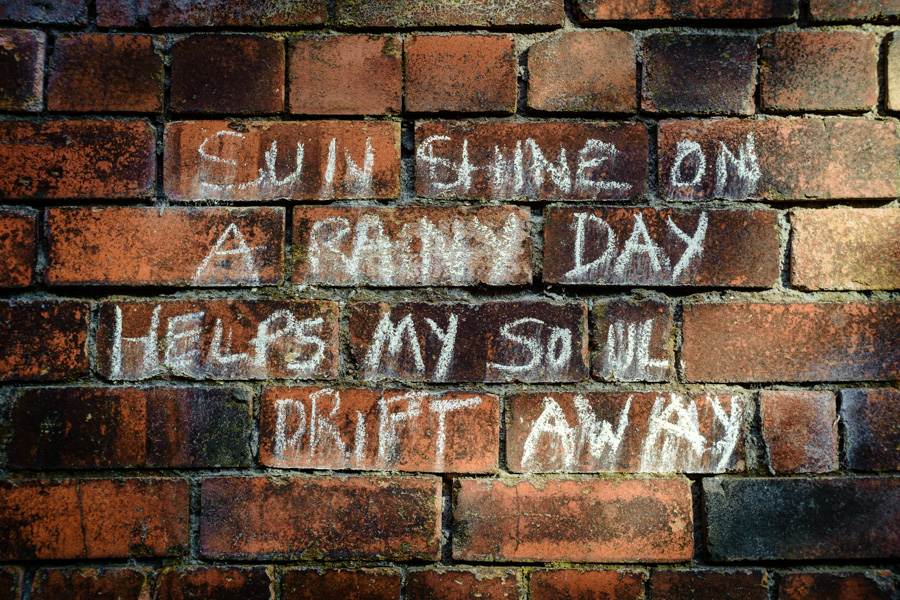 SUNSHINE ON
A RAINY DAY
HELPS MY SOUL
DRIFT AWAY